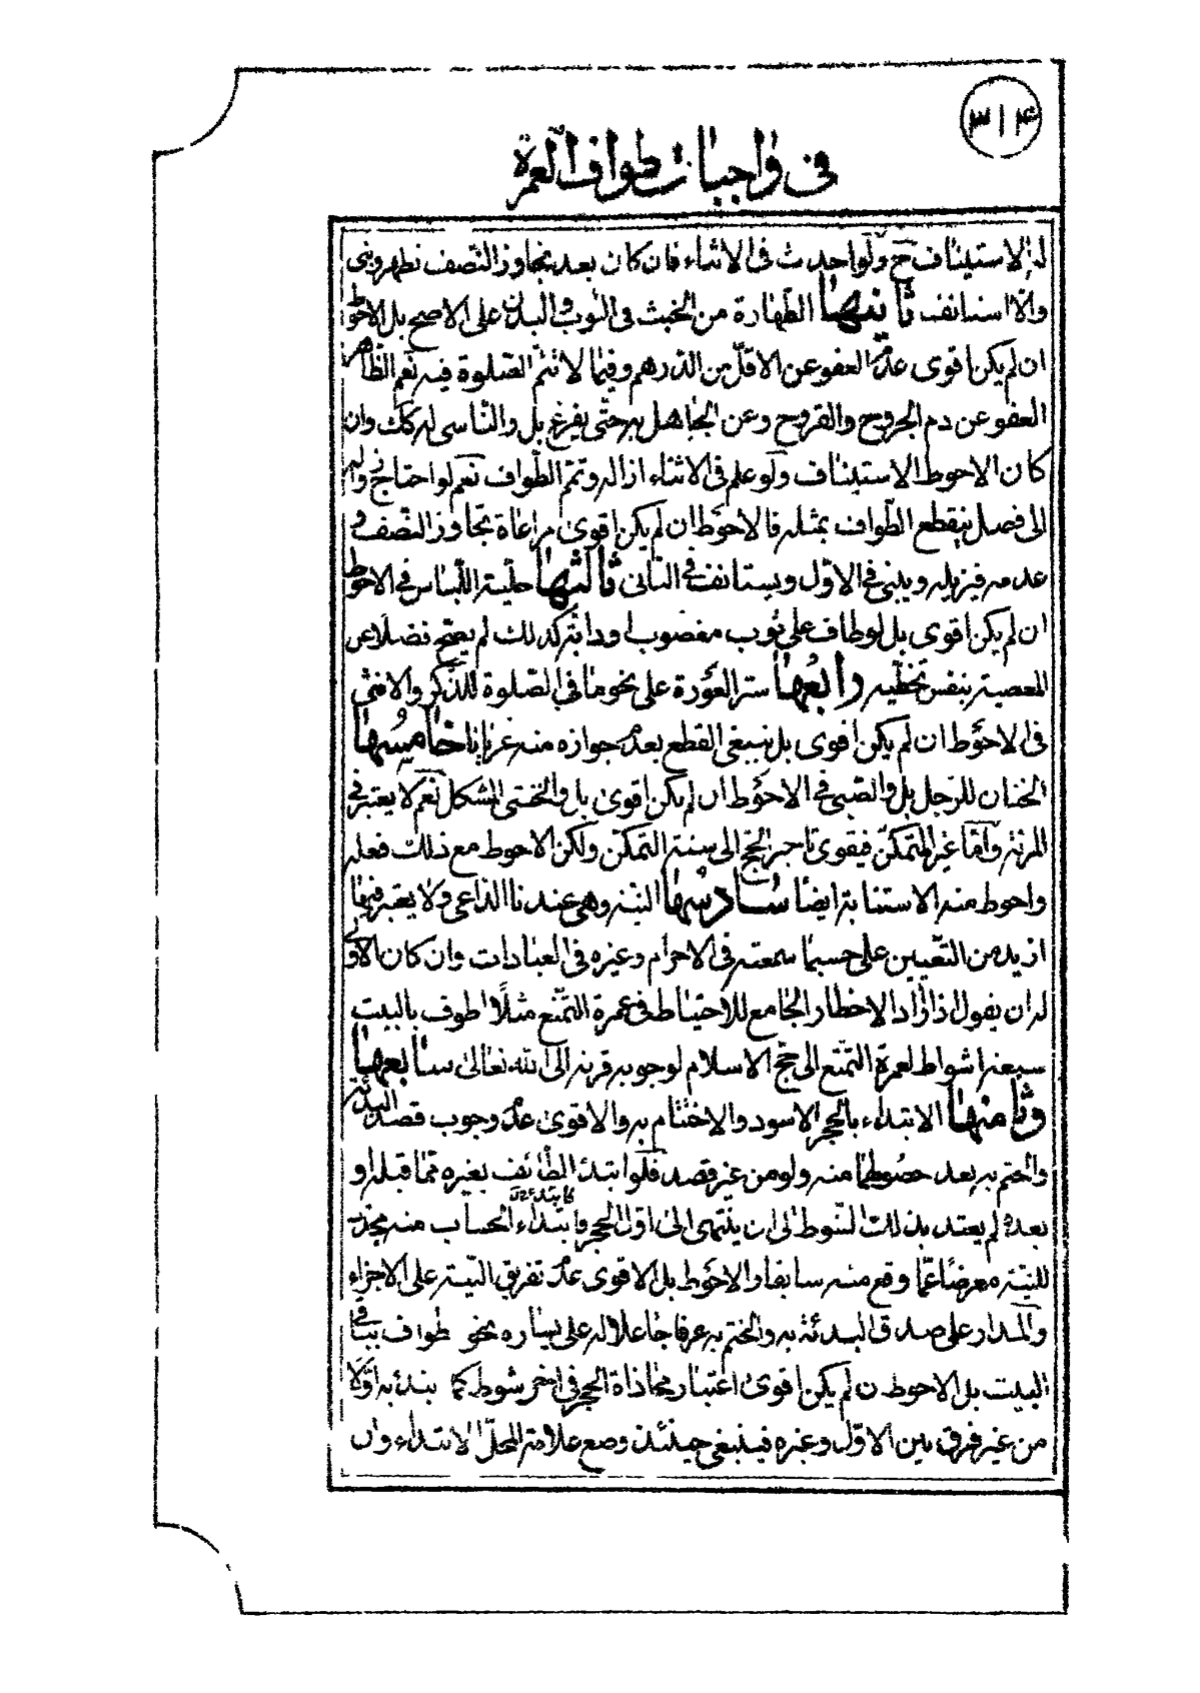 ٣١٤
في واجبات طواف العمرة
له الاستيناف ح ولو احدث في الاثناء فان كان بعد تجاوز النصف تطهر وبنى
والّا استانف ثانيها الطّهارة من الخبث في الثوب والبدن على الاصح بل الاحوط
ان لم يكن اقوى عدم العفو عن الاقلّ من الدرهم وفيما لا تتمّ الصّلوة فيه نعم الظّاهر
العفو عن دم الجروح والقروح وعن الجاهل به حتّى يفرغ بل والنّاسى له كك وان
كان الاحوط الاستيناف ولو علم في الاثناء ازاله وتمّ الطّواف نعم لو احتاج زواله
الى فصل ينقطع الطّواف بمثله فالاحوط ان لم يكن اقوى مراعاة تجاوز النّصف و
عدمه فيزيله ويبنى في الاوّل ويستانف في الثانى ثالثها حلّية اللّباس في الاحوط
ان لم يكن اقوى بل لو طاف على ثوب مغصوب او دابّة كذلك لم يصحّ فضلا عن
المعصية بنفس تخطّيه رابعها ستر العورة على نحو ما في الصّلوة للذّكر والانثى
في الاحوط ان لم يكن اقوى بل ينبغى القطع بعدم جوازه منه عريانا خامسها
الختان للرّجل بل والصّبى في الاحوط ان لم يكن اقوى بل والخنثى المشكل نعم لا يعتبر في
المرئة وامّا غير المتمكّن فيقوى تاخير الحجّ الى سنة التمكّن ولكن الاحوط مع ذلك فعله
واحوط منه الاستنابة ايضًا سادسها النيّة وهى عندنا الداعى ولا يعتبر فيها
ازيد من التعّيين على حسبما سمعته في الاحرام وغيره في العبادات وان كان الاولى
له ان يقول اذا اراد الاخطار الجامع للاحتياط في عمرة التمّتع مثلًا اطوف بالبيت
سبعة اشواط لعمرة التمّتع الى حجّ الاسلام لوجوبه قربة الى الله تعالى سابعها
وثامنها الابتداء بالحجر الاسود والاختتام به والاقوى عدم وجوب قصد البدئة
والختم به بعد حصولهما منه ولو من غير قصد فلو ابتدء الطّائف بغيره ممّا قبله او
بعده لم يعتد بذلك الشّوط الى ان ينتهى الى اوّل الحجر فابتداء الحساب منه مجدّد
للنيّة معرضًا عمّا وقع منه سابقا والاحوط بل الاقوى عدم تفريق النّية على الاجزاء
والمدار على صدق البدئة به والختم به عرفا جاعلا له على يساره كنحو طواف بباقى
البيت بل الاحوط ن لم يكن اقوى اعتبار محاذاة الحجر في اخر شوط كما يبتدء به اوّلًا
من غير فرق بين الاوّل وغيره فينبغى حينئذ وضع علامة لمحلّ الابتداء وان